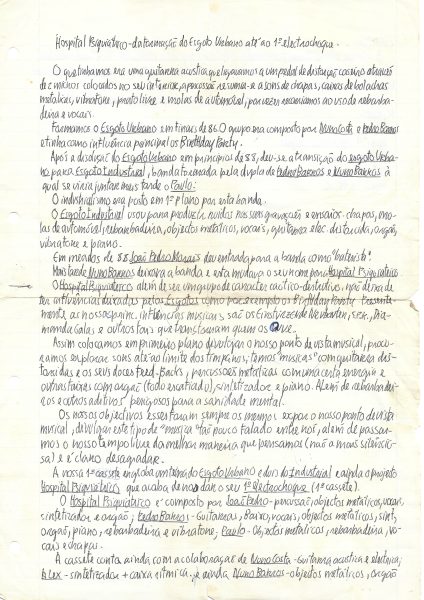 Hospital Psiquiátrico - da formação do Esgoto Urbano até ao 1º electrochoque.
O que tinhamos era uma guitarra acustica que ligavamos a um pedal de distorção
de 2 micros colocados no seu interior, a percussão resumia-se a sons de chapas, caixas de bolachas
metalicas, vibrafone, prato livre e molas de automóvel, por vezes recorriamos ao uso da rebarba-
deira e vocais.
Formamos o Esgoto Urbano em finais de 86. O grupo era composto por Nuno Costa e Pedro Barros
e tinha como influência principal os Birthday Party.
Após a dissolução do Esgoto Urbano em principios de 88, deu-se a transição do Esgoto Urba-
no para Esgoto Industrial, banda formada pela dupla de Pedro Barros e Nuno Barros à
qual se viria juntar mais tarde o Paulo:
O industrialismo era posto em 1º plano por esta banda.
O Esgoto Industrial usou para produzir ruidos nas suas gravações e ensaios - chapas, mo-
las de automóvel, rebarbadeira, objectos metálicos, vocais, guitarra elec. distorcida, orgão,
vibrafone e piano.
Em meados de 88 João Pedro Morais deu entrada para a banda como "baterista".
Mais tarde Nuno Barros deixava a banda e esta mudava o seu nome para Hospital Psiquiátrico
O Hospital Psiquiátrico além de ser um grupo de caracter caótico-destrutivo, não deixa de
ter influências deixadas pelos Esgotos como por exemplo os Birthday Party. Presente-
mente as nossas principais influências musicais são os Einstürzende Neubauten, SPK, Dia-
manda Galas e outros tais que transtornam quem os ouve.
Assim colocamos em primeiro plano divulgar o nosso ponto de vista musical, procu-
ramos explorar sons até ao limite dos timpanos, temos "musicas" com guitarra dis-
torcidas e os seus dores Feed-Backs, percussões metálicas com muita energia e
outras faixas com orgão (todo escafiado), sintetizador e piano. Além de rebarbadei-
ras e outros aditivos perigosos para a sanidade mental.
Os nossos objectivos esses foram sempre os mesmos: expor o nosso ponto de vista
musical, divulgar este tipo de "musica" tão pouco falado entre nós, além de passar-
mos o nosso tempo livre da melhor maneira que pensamos (não a mais silencio-
sa) e é claro desagradar.
A nossa 1ª cassete engloba um tema do Esgoto Urbano e dois do Industrial e ainda o projecto
Hospital Psiquiátrico que acaba de nos dar o seu 1º electrochoque (1ª cassete).
O Hospital Psiquiátrico é composto por João Pedro - percussão, objectos metálicos, vocais,
sintetizador e orgão; Pedro Barros - Guitarras, baixo, vocais, objectos metálicos, sint,
orgão, piano, rebarbadeira e vibrafone; Paulo - Objectos metálicos, rebarbadeira, vo-
cais e chapas.
A cassete conta ainda com a colaboração de Nuno Costa - Guitarra acustica e electrica;
Alex - sintetizador + caixa ritmica, e ainda Nuno Barros - objectos metálicos, orgão